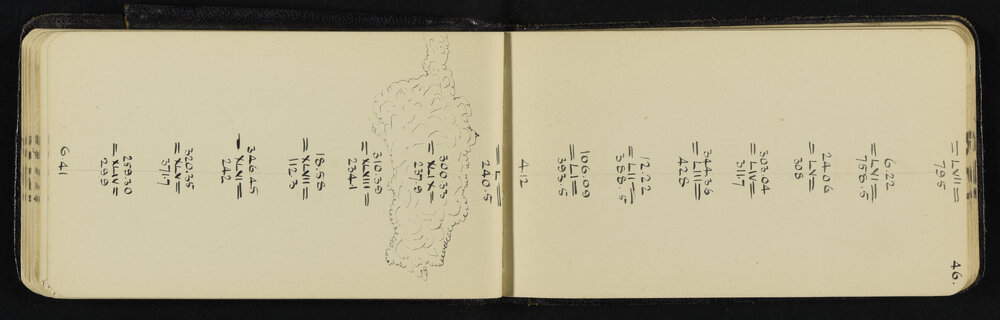 46.
= LVII =
795
6.22
= LVI =
758.5
24.06
= LV =
308
303.04
= LIV =
311.7
34.36
= LIII =
428
12.22
= LII =
358.5
106.09
= LI =
393.5
412
= L =
240.5
300.33
= XLIX =
237.9
310.39
= XLVIII =
234.1
18.58
= XLVII =
112.3
346.45
= XLVI =
242
320.35
= XLV =
371.7
259.30
= XLIV =
299
641